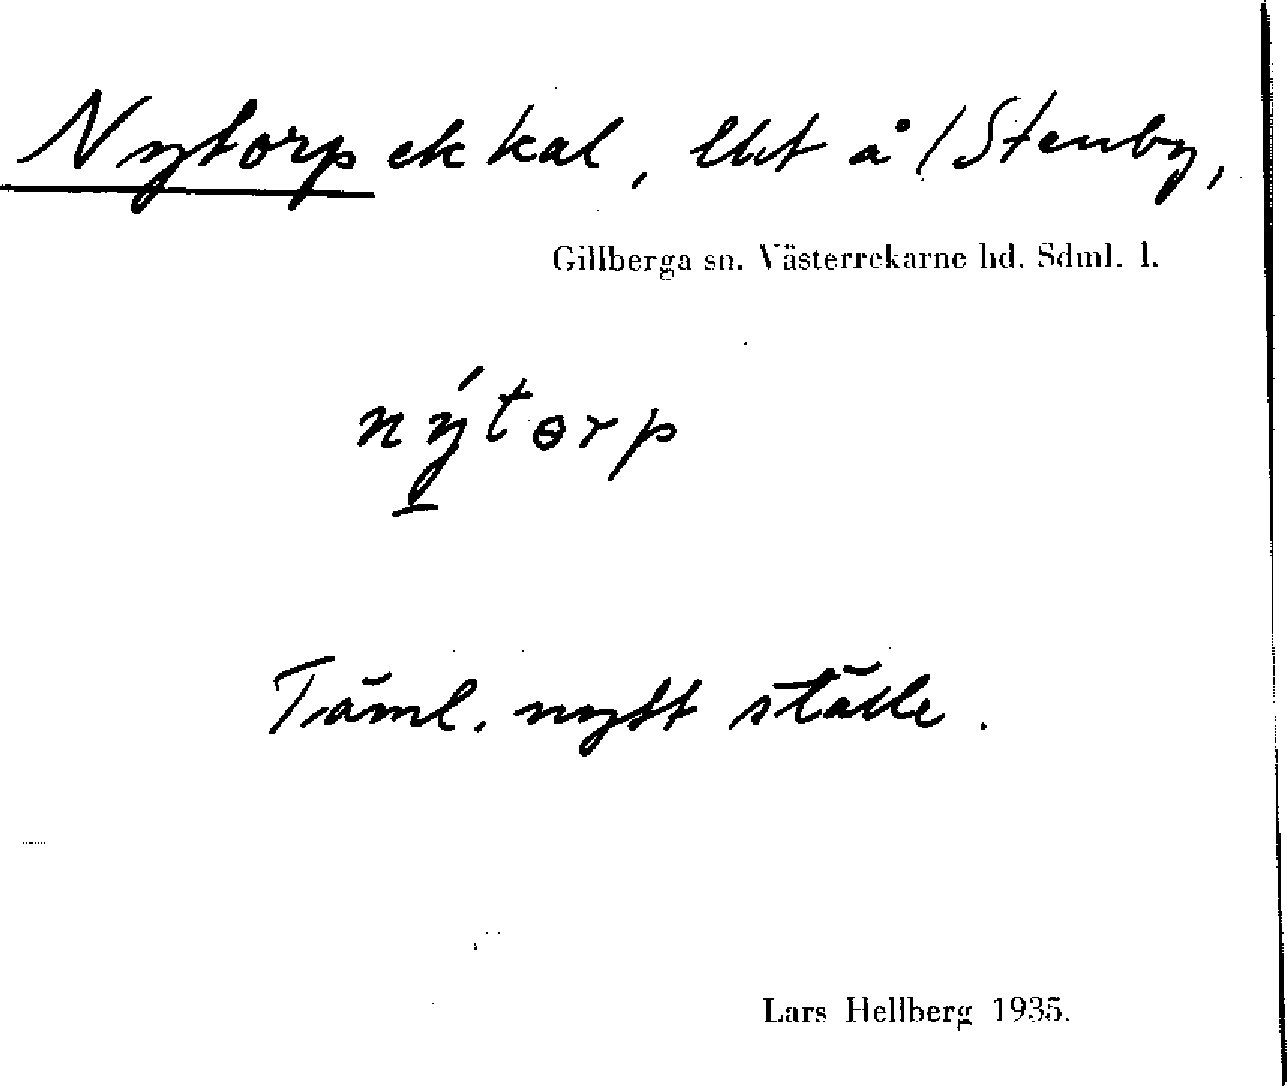 Nytorp ek kal, lht å /Stenby,
Gillberga sn. Västerrekarne hd. Sdml. l.
nýtɵrp
Täml. nytt ställe.
Lars Hellberg 1935.